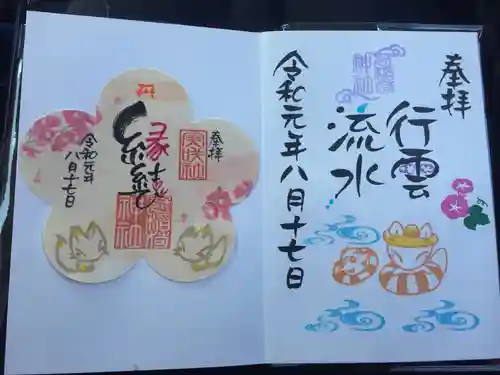 奉拝
行雲
流水
令和元年八月十七日
奉拝
縁結び
神社
令和元年
八月十七日